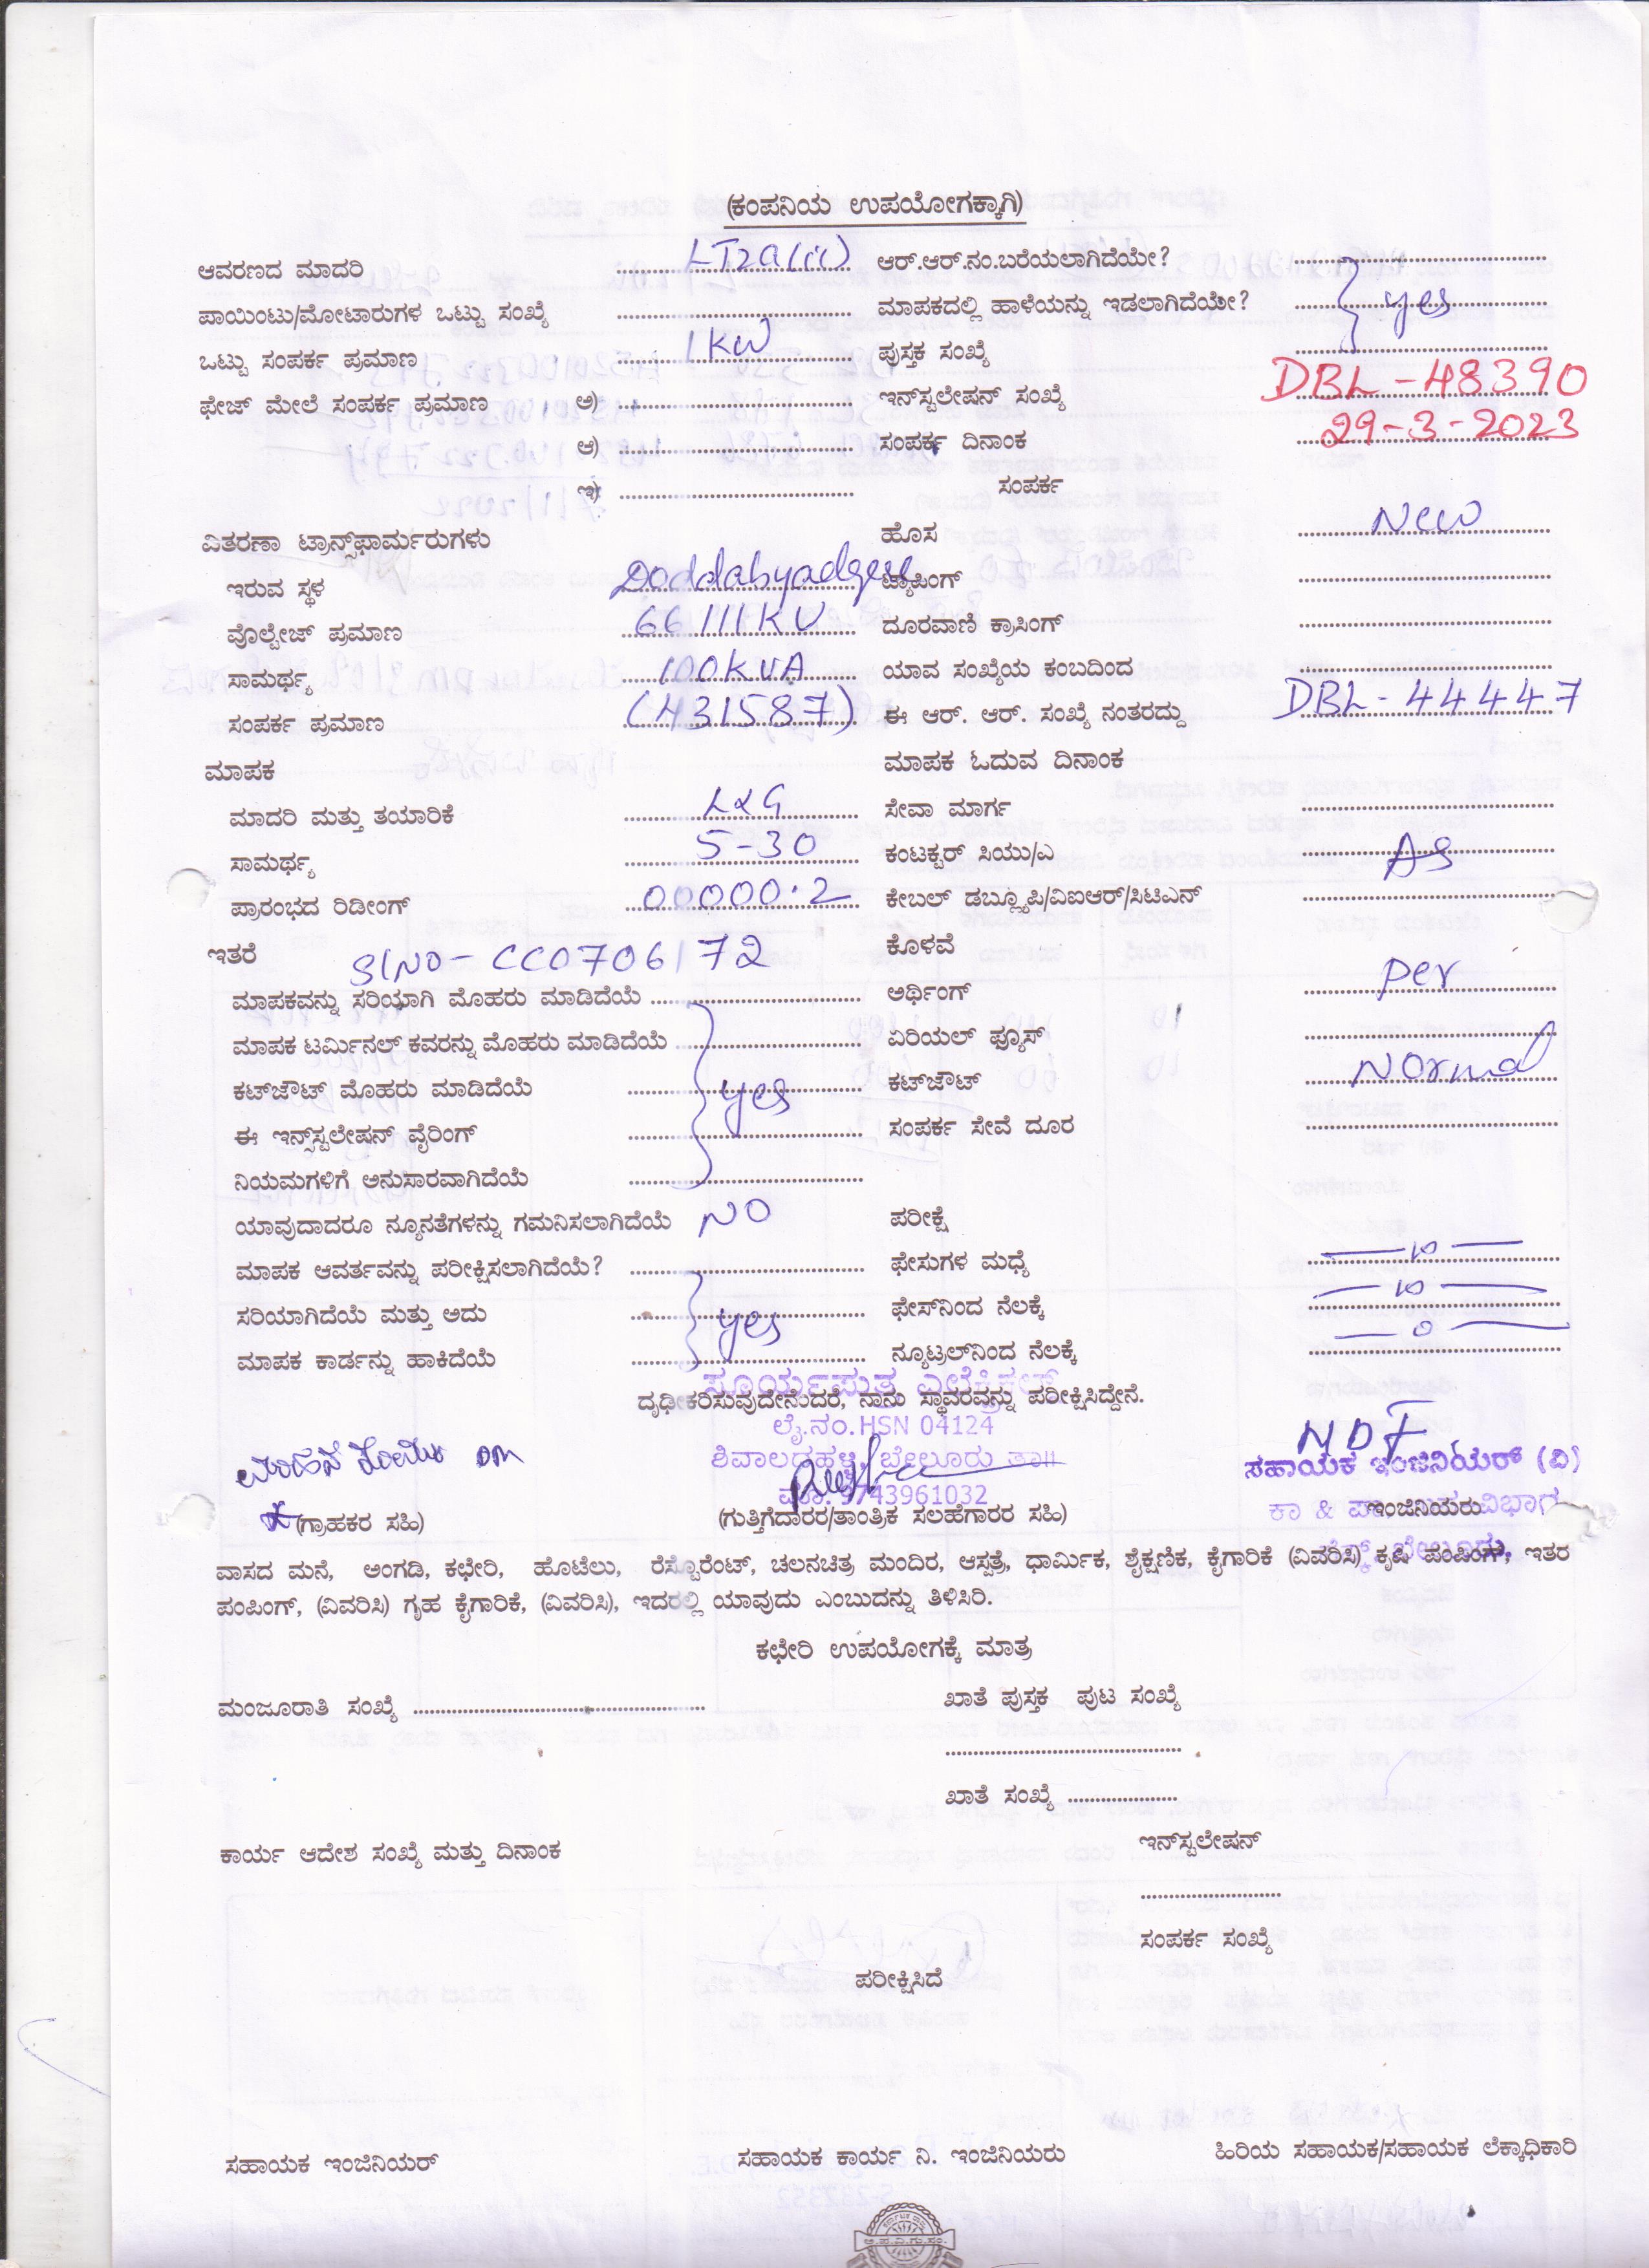 (ಕಂಪನಿಯ ಉಪಯೋಗಕ್ಕಾಗಿ)
ಆವರಣದ ಮಾದರಿ LT2a(ii) ಆರ್.ಆರ್.ನಂ.ಬರೆಯಲಾಗಿದೆಯೇ?
ಪಾಯಿಂಟು/ಮೋಟಾರುಗಳ ಒಟ್ಟು ಸಂಖ್ಯೆ ಮಾಪಕದಲ್ಲಿ ಹಾಳೆಯನ್ನು ಇಡಲಾಗಿದೆಯೇ? yes
ಒಟ್ಟು ಸಂಪರ್ಕ ಪ್ರಮಾಣ 1KW ಪುಸ್ತಕ ಸಂಖ್ಯೆ
ಫೇಜ್ ಮೇಲೆ ಸಂಪರ್ಕ ಪ್ರಮಾಣ ಅ) ಇನ್‌ಸ್ಟಲೇಷನ್ ಸಂಖ್ಯೆ DBL-48390
ಆ) ಸಂಪರ್ಕ ದಿನಾಂಕ 29-3-2023
ಇ) ಸಂಪರ್ಕ
ವಿತರಣಾ ಟ್ರಾನ್ಸ್‌ಫಾರ್ಮರುಗಳು ಹೊಸ New
ಇರುವ ಸ್ಥಳ Doddabyadgere ಟ್ಯಾಪಿಂಗ್
ವೊಲ್ಟೇಜ್ ಪ್ರಮಾಣ 66/11KV ದೂರವಾಣಿ ಕ್ರಾಸಿಂಗ್
ಸಾಮರ್ಥ್ಯ 100KVA ಯಾವ ಸಂಖ್ಯೆಯ ಕಂಬದಿಂದ
ಸಂಪರ್ಕ ಪ್ರಮಾಣ (431587) ಈ ಆರ್. ಆರ್. ಸಂಖ್ಯೆ ನಂತರದ್ದು DBL-44447
ಮಾಪಕ ಮಾಪಕ ಓದುವ ದಿನಾಂಕ
ಮಾದರಿ ಮತ್ತು ತಯಾರಿಕೆ L&G ಸೇವಾ ಮಾರ್ಗ
ಸಾಮರ್ಥ್ಯ 5-30 ಕಂಟಕ್ಟರ್ ಸಿಯು/ಎ As
ಪ್ರಾರಂಭದ ರಿಡೀಂಗ್ 00000.2 ಕೇಬಲ್ ಡಬ್ಲ್ಯೂಪಿ/ವಿಐಆರ್/ಸಿಟಿಎನ್
ಇತರೆ Sl NO- CC0706172 ಕೊಳವೆ
ಮಾಪಕವನ್ನು ಸರಿಯಾಗಿ ಮೊಹರು ಮಾಡಿದೆಯೆ ಅರ್ಥಿಂಗ್ per
ಮಾಪಕ ಟರ್ಮಿನಲ್ ಕವರನ್ನು ಮೊಹರು ಮಾಡಿದೆಯೆ ಏರಿಯಲ್ ಫ್ಯೂಸ್
ಕಟ್‌ಔಟ್ ಮೊಹರು ಮಾಡಿದೆಯೆ yes ಕಟ್‌ಔಟ್ Normal
ಈ ಇನ್ಸ್‌ಟಲೇಷನ್ ವೈರಿಂಗ್ ಸಂಪರ್ಕ ಸೇವೆ ದೂರ
ನಿಯಮಗಳಿಗೆ ಅನುಸಾರವಾಗಿದೆಯೆ
ಯಾವುದಾದರೂ ನ್ಯೂನತೆಗಳನ್ನು ಗಮನಿಸಲಾಗಿದೆಯೆ NO ಪರೀಕ್ಷೆ
ಮಾಪಕ ಆವರ್ತವನ್ನು ಪರೀಕ್ಷಿಸಲಾಗಿದೆಯೆ? ಫೇಸುಗಳ ಮಧ್ಯೆ
ಸರಿಯಾಗಿದೆಯೆ ಮತ್ತು ಅದು yes ಫೇಸ್‌ನಿಂದ ನೆಲಕ್ಕೆ
ಮಾಪಕ ಕಾರ್ಡನ್ನು ಹಾಕಿದೆಯೆ ನ್ಯೂಟ್ರಲ್‌ನಿಂದ ನೆಲಕ್ಕೆ
ಸೂರ್ಯಪುತ್ರ ಎಲೆಕ್ಟ್ರಿಕಲ್ಸ್
ದೃಢೀಕರಿಸುವುದೇನೆಂದರೆ, ನಾನು ಸ್ಥಾವರವನ್ನು ಪರೀಕ್ಷಿಸಿದ್ದೇನೆ.
ಲೈ.ನಂ.HSN 04124
ಶಿವಾಲದಹಳ್ಳಿ, ಬೇಲೂರು ತಾ॥
ಮೊ: 9743961032
ಸಹಾಯಕ ಇಂಜಿನಿಯರ್ (ವಿ)
(ಗ್ರಾಹಕರ ಸಹಿ) (ಗುತ್ತಿಗೆದಾರರ/ತಾಂತ್ರಿಕ ಸಲಹೆಗಾರರ ಸಹಿ) ಇಂಜಿನಿಯರು
ವಾಸದ ಮನೆ, ಅಂಗಡಿ, ಕಛೇರಿ, ಹೊಟೆಲು, ರೆಸ್ಟೊರೆಂಟ್, ಚಲನಚಿತ್ರ ಮಂದಿರ, ಆಸ್ಪತ್ರೆ, ಧಾರ್ಮಿಕ, ಶೈಕ್ಷಣಿಕ, ಕೈಗಾರಿಕೆ (ವಿವರಿಸಿ) ಕೃಷಿ ಪಂಪಿಂಗ್, ಇತರ
ಪಂಪಿಂಗ್, (ವಿವರಿಸಿ) ಗೃಹ ಕೈಗಾರಿಕೆ, (ವಿವರಿಸಿ), ಇದರಲ್ಲಿ ಯಾವುದು ಎಂಬುದನ್ನು ತಿಳಿಸಿರಿ.
ಕಛೇರಿ ಉಪಯೋಗಕ್ಕೆ ಮಾತ್ರ
ಮಂಜೂರಾತಿ ಸಂಖ್ಯೆ ಖಾತೆ ಪುಸ್ತಕ ಪುಟ ಸಂಖ್ಯೆ
ಖಾತೆ ಸಂಖ್ಯೆ
ಕಾರ್ಯ ಆದೇಶ ಸಂಖ್ಯೆ ಮತ್ತು ದಿನಾಂಕ ಇನ್‌ಸ್ಟಲೇಷನ್
ಸಂಪರ್ಕ ಸಂಖ್ಯೆ
ಪರೀಕ್ಷಿಸಿದೆ
ಸಹಾಯಕ ಇಂಜಿನಿಯರ್ ಸಹಾಯಕ ಕಾರ್ಯ ನಿ. ಇಂಜಿನಿಯರು ಹಿರಿಯ ಸಹಾಯಕ/ಸಹಾಯಕ ಲೆಕ್ಕಾಧಿಕಾರಿ